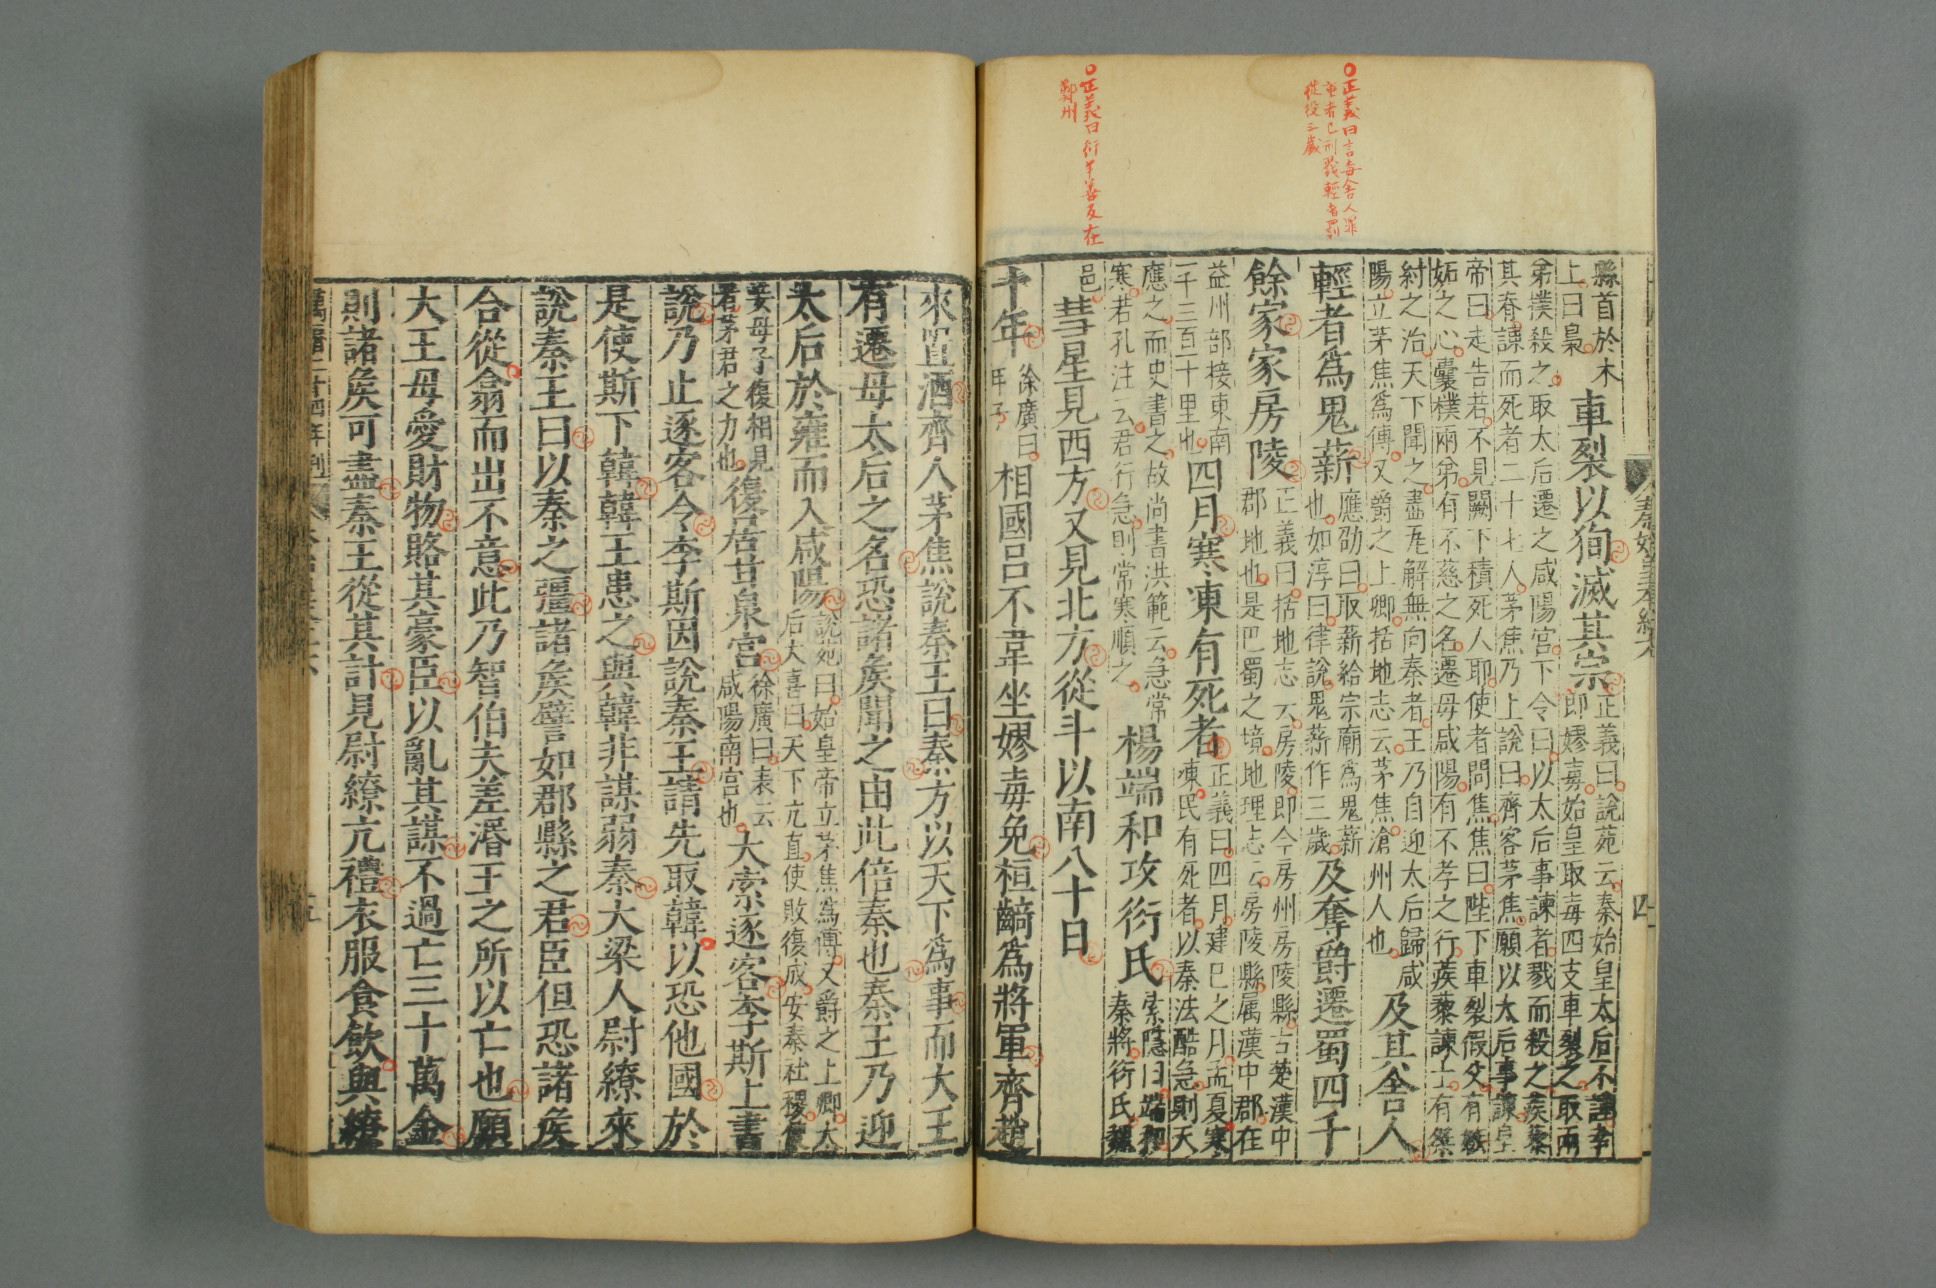 正義曰言毐舍人罪
重者已刑戮輕者罰
徒役三歲
正義曰衍羊善反在
鄭州
秦始皇本紀六
四
縣首於木
上曰梟
車裂以狥滅其宗
正義曰說苑云秦始皇太后不謹幸
郎嫪毐始皇取毐四支車裂之取兩
弟撲殺之取太后遷之咸陽宮下令曰以太后事諫者戮而殺之蒺藜
其脊諫而死者二十七人茅焦乃上說曰齊客茅焦願以太后事諫皇
帝曰走告若不見闕下積死人耶使者問焦焦曰陛下車裂假父有嫉
妬之心囊樸兩弟有不慈之名遷母咸陽有不孝之行蒺藜諫士有桀
紂之治天下聞之盡瓦解無向秦者王乃自迎太后歸咸
陽立茅焦爲傅又爵之上卿括地志云茅焦滄州人也
及其舍人
輕者爲鬼薪
應劭曰取薪給宗廟爲鬼薪
也如淳曰律說鬼薪作三歲
及奪爵遷蜀四千
餘家家房陵
正義曰括地志云房陵即今房州房陵縣古楚漢中
郡地也是巴蜀之境地理志云房陵縣属漢中郡在
益州部接東南
千三百十里也
四月寒凍有死者
正義曰四月建巳之月孟夏寒
凍民有死者以秦法酷急則天
應之而史書之故尚書洪範云急常
寒若孔注云君行急則常寒順之
楊端和攻衍氏
索隱曰端和
秦將衍氏魏
邑
彗星見西方又見北方從斗以南八十日
十年
徐廣曰
甲子
相國呂不韋坐嫪毐免桓齮爲將軍齊趙
來置酒齊人茅焦說秦王曰秦方以天下爲事而大王
有遷母太后之名恐諸矦聞之由此倍秦也秦王乃迎
太后於雍而入咸陽
說苑曰始皇帝立茅焦爲傅又爵之上卿太
后大喜曰天下亢直使敗復成安秦社稷使
妾母子復相見
者茅君之力也
復居甘泉宮
徐廣曰表云
咸陽南宮也
大索逐客李斯上書
說乃止逐客令李斯因說秦王請先取韓以恐他國於
是使斯下韓韓王患之與韓非謀弱秦大梁人尉繚來
說秦王曰以秦之彊諸矦譬如郡縣之君臣但恐諸矦
合從翕而出不意此乃智伯夫差湣王之所以亡也願
大王毋愛財物賂其豪臣以亂其謀不過亡三十萬金
則諸矦可盡秦王從其計見尉繚亢禮衣服食飲與繚
萬曆二十四年刊